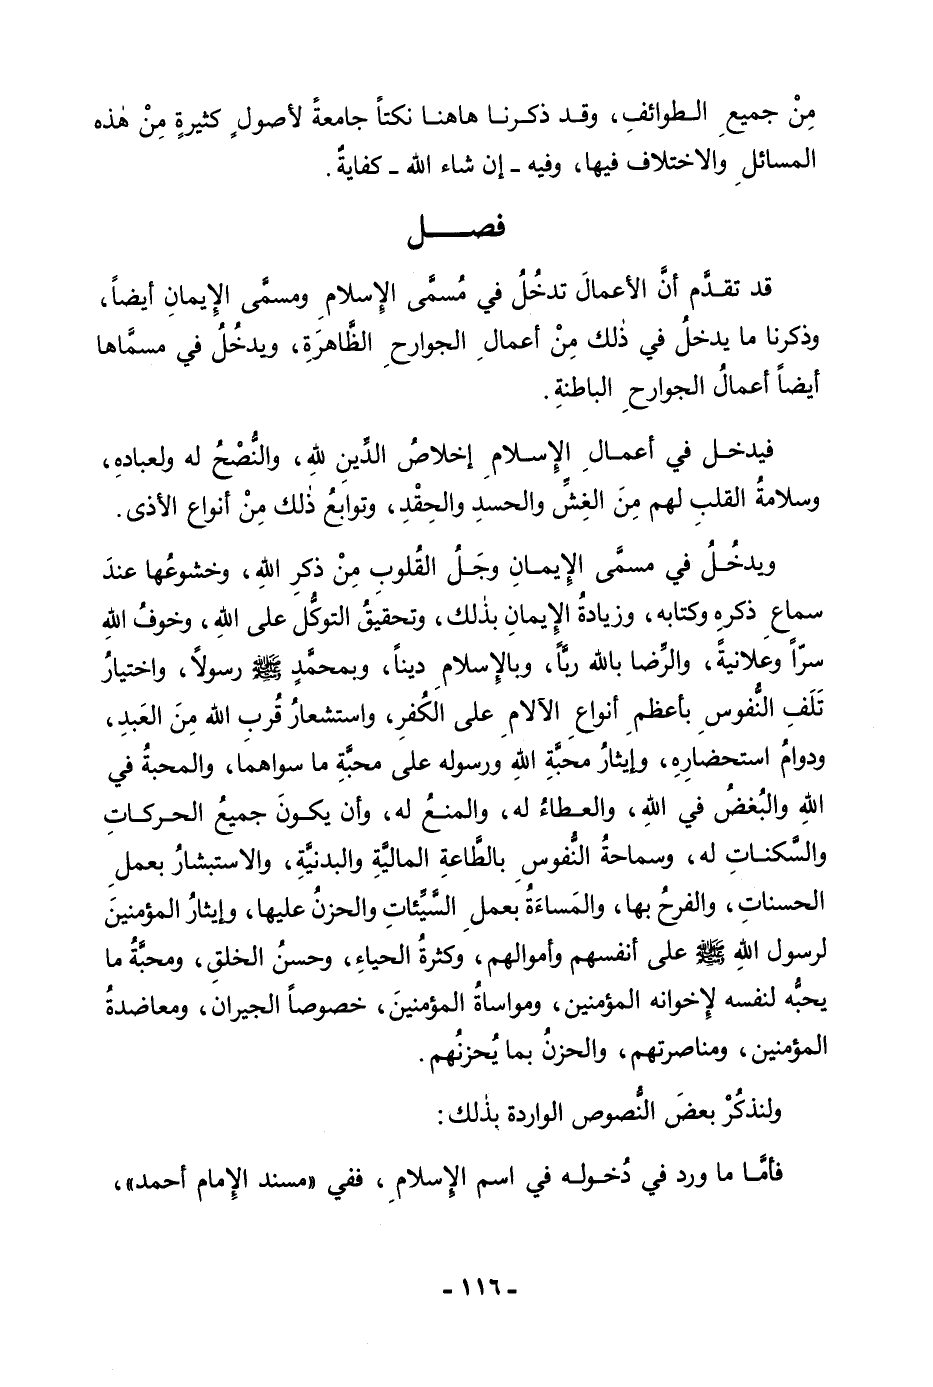 مِنْ جميعِ الطوائفِ، وقد ذكرنا هاهنا نكتاً جامعةً لأصولٍ كثيرةٍ مِنْ هٰذه
المسائلِ والاختلاف فيها، وفيه - إن شاء الله - كفايةٌ.
فصل
قد تقدَّم أنَّ الأعمالَ تدخُلُ في مُسمَّى الإِسلامِ ومسمَّى الإِيمانِ أيضاً،
وذكرنا ما يدخلُ في ذٰلك مِنْ أعمالِ الجوارحِ الظَّاهرَةِ، ويدخُلُ في مسمَّاها
أيضاً أعمالُ الجوارحِ الباطنةِ.
فيدخل في أعمالِ الإِسلامِ إخلاصُ الدِّينِ للهِ، والنُّصْحُ له ولعبادهِ،
وسلامةُ القلبِ لهم مِنَ الغِشِّ والحسدِ والحِقْدِ، وتوابعُ ذٰلك مِنْ أنواع الأذى.
ويدخُلُ في مسمَّى الإِيمانِ وجَلُ القُلوبِ مِنْ ذكرِ اللهِ، وخشوعُها عندَ
سماعِ ذكرهِ وكتابه، وزيادةُ الإِيمانِ بذٰلك، وتحقيقُ التوكُّل على اللهِ، وخوفُ اللهِ
سرّاً وعلانيةً، والرِّضا بالله ربّاً، وبالإِسلامِ ديناً، وبمحمَّدٍ ﷺ رسولاً، واختيارُ
تَلَفِ النُّفوسِ بأعظمِ أنواعِ الآلامِ على الكُفرِ، واستشعارُ قُربِ الله مِنَ العَبدِ،
ودوامُ استحضارِهِ، وإيثارُ محبَّةِ اللهِ ورسوله على محبَّةِ ما سواهما، والمحبةُ في
اللهِ والبُغضُ في اللهِ، والعطاءُ له، والمنعُ له، وأن يكونَ جميعُ الحركاتِ
والسَّكناتِ له، وسماحةُ النُّفوسِ بالطَّاعةِ الماليَّةِ والبدنيَّةِ، والاستبشارُ بعملِ
الحسناتِ، والفرحُ بها، والمَساءَةُ بعملِ السَّيِّئاتِ والحزنُ عليها، وإيثارُ المؤمنينَ
لرسول اللهِ ﷺ على أنفسهم وأموالهم، وكثرةُ الحياءِ، وحسنُ الخلقِ، ومحبَّةُ ما
يحبُّه لنفسه لإِخوانه المؤمنين، ومواساةُ المؤمنينَ، خصوصاً الجيران، ومعاضدةُ
المؤمنين، ومناصرتهم، والحزنُ بما يُحزنُهم.
ولنذكُرْ بعضَ النُّصوص الواردة بذٰلك:
فأمَّا ما ورد في دُخوله في اسم الإِسلامِ، ففي «مسند الإِمام أحمد»،
- ١١٦ -